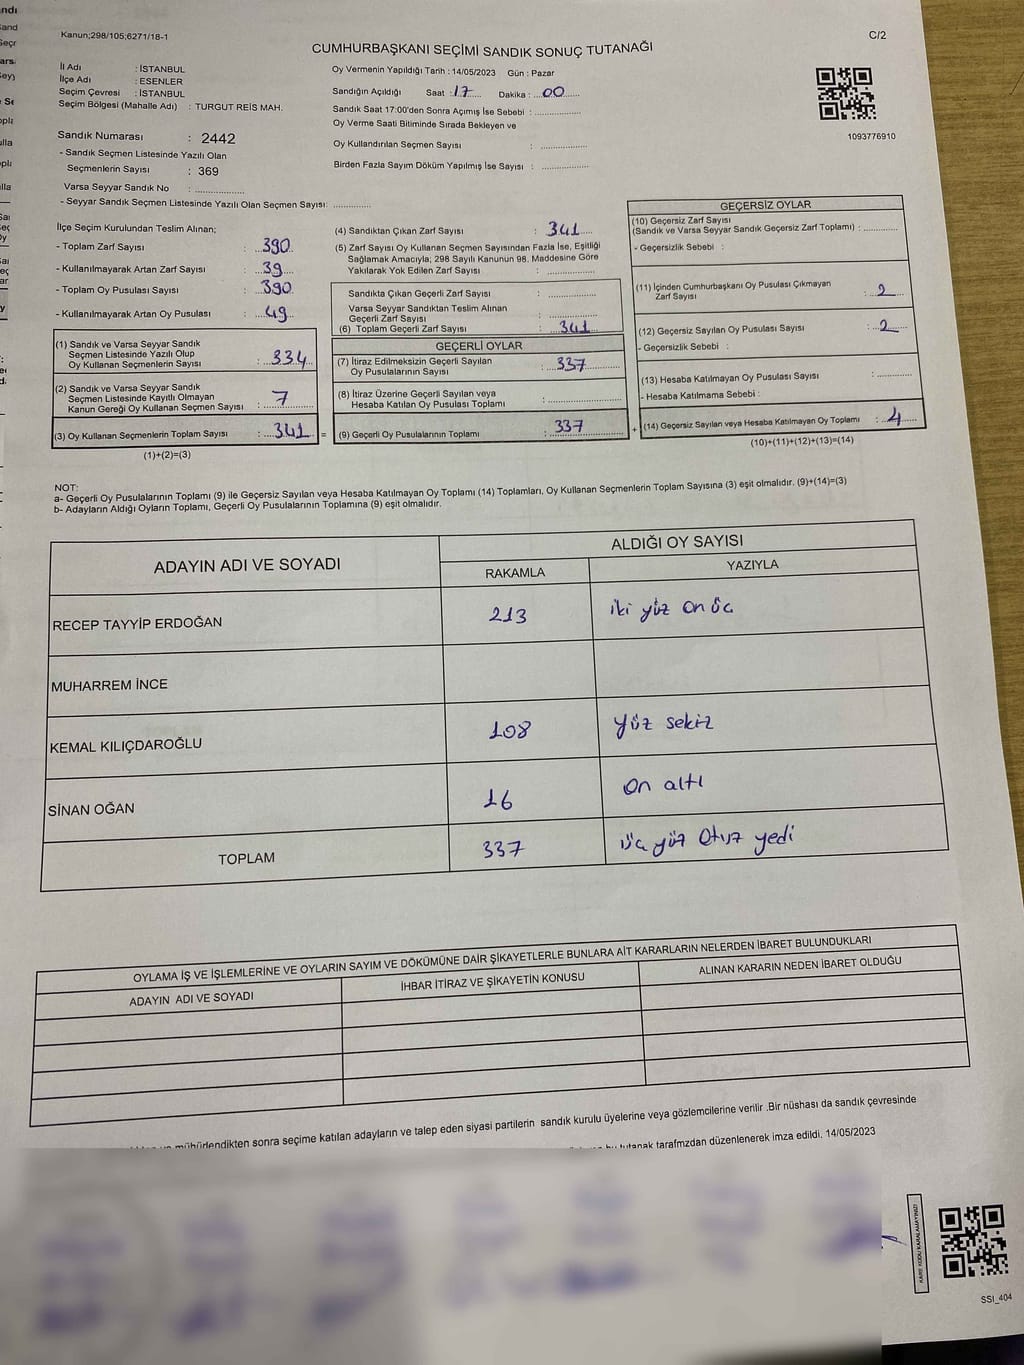 Kanun;298/105;6271/18-1
C/2
CUMHURBAŞKANI SEÇİMİ SANDIK SONUÇ TUTANAĞI
İl Adı : İSTANBUL
İlçe Adı : ESENLER
Seçim Çevresi : İSTANBUL
Seçim Bölgesi (Mahalle Adı) : TURGUT REİS MAH.
Oy Vermenin Yapıldığı Tarih : 14/05/2023 Gün : Pazar
Sandığın Açıldığı Saat : 17 Dakika : 00
Sandık Saat 17:00'den Sonra Açımış İse Sebebi :
Oy Verme Saati Bitiminde Sırada Bekleyen ve
Oy Kullandırılan Seçmen Sayısı :
Birden Fazla Sayım Döküm Yapılmış İse Sayısı :
1093776910
Sandık Numarası : 2442
- Sandık Seçmen Listesinde Yazılı Olan
Seçmenlerin Sayısı : 369
Varsa Seyyar Sandık No :
- Seyyar Sandık Seçmen Listesinde Yazılı Olan Seçmen Sayısı:
İlçe Seçim Kurulundan Teslim Alınan;
- Toplam Zarf Sayısı : 390
- Kullanılmayarak Artan Zarf Sayısı : 39
- Toplam Oy Pusulası Sayısı : 390
- Kullanılmayarak Artan Oy Pusulası : 49
(1) Sandık ve Varsa Seyyar Sandık
Seçmen Listesinde Yazılı Olup
Oy Kullanan Seçmenlerin Sayısı : 334
(2) Sandık ve Varsa Seyyar Sandık
Seçmen Listesinde Kayıtlı Olmayan
Kanun Gereği Oy Kullanan Seçmen Sayısı : 7
(3) Oy Kullanan Seçmenlerin Toplam Sayısı : 341 =
(1)+(2)=(3)
(4) Sandıktan Çıkan Zarf Sayısı : 341
(5) Zarf Sayısı Oy Kullanan Seçmen Sayısından Fazla İse, Eşitliği
Sağlamak Amacıyla; 298 Sayılı Kanunun 98. Maddesine Göre
Yakılarak Yok Edilen Zarf Sayısı :
Sandıkta Çıkan Geçerli Zarf Sayısı :
Varsa Seyyar Sandıktan Teslim Alınan
Geçerli Zarf Sayısı :
(6) Toplam Geçerli Zarf Sayısı : 341
GEÇERLİ OYLAR
(7) İtiraz Edilmeksizin Geçerli Sayılan
Oy Pusulalarının Sayısı : 337
(8) İtiraz Üzerine Geçerli Sayılan veya
Hesaba Katılan Oy Pusulası Toplamı :
(9) Geçerli Oy Pusulalarının Toplamı : 337 +
GEÇERSİZ OYLAR
(10) Geçersiz Zarf Sayısı
(Sandık ve Varsa Seyyar Sandık Geçersiz Zarf Toplamı) :
- Geçersizlik Sebebi :
(11) İçinden Cumhurbaşkanı Oy Pusulası Çıkmayan
Zarf Sayısı : 2
(12) Geçersiz Sayılan Oy Pusulası Sayısı : 2
- Geçersizlik Sebebi :
(13) Hesaba Katılmayan Oy Pusulası Sayısı :
- Hesaba Katılmama Sebebi :
(14) Geçersiz Sayılan veya Hesaba Katılmayan Oy Toplamı : 4
(10)+(11)+(12)+(13)=(14)
NOT:
a- Geçerli Oy Pusulalarının Toplamı (9) ile Geçersiz Sayılan veya Hesaba Katılmayan Oy Toplamı (14) Toplamları, Oy Kullanan Seçmenlerin Toplam Sayısına (3) eşit olmalıdır. (9)+(14)=(3)
b- Adayların Aldığı Oyların Toplamı, Geçerli Oy Pusulalarının Toplamına (9) eşit olmalıdır.
ADAYIN ADI VE SOYADI
ALDIĞI OY SAYISI
RAKAMLA YAZIYLA
RECEP TAYYİP ERDOĞAN 213 iki yüz on üç
MUHARREM İNCE
KEMAL KILIÇDAROĞLU 108 yüz sekiz
SİNAN OĞAN 16 on altı
TOPLAM 337 üç yüz otuz yedi
OYLAMA İŞ VE İŞLEMLERİNE VE OYLARIN SAYIM VE DÖKÜMÜNE DAİR ŞİKAYETLERLE BUNLARA AİT KARARLARIN NELERDEN İBARET BULUNDUKLARI
ADAYIN ADI VE SOYADI İHBAR İTİRAZ VE ŞİKAYETİN KONUSU ALINAN KARARIN NEDEN İBARET OLDUĞU
mühürlendikten sonra seçime katılan adayların ve talep eden siyasi partilerin sandık kurulu üyelerine veya gözlemcilerine verilir .Bir nüshası da sandık çevresinde
bu tutanak tarafmzdan düzenlenerek imza edildi. 14/05/2023
KARE KODU KARALAMAYINIZ!
SSI_404